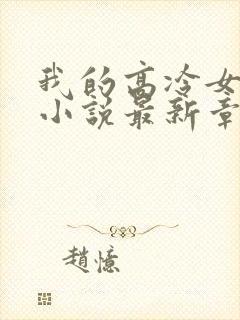 我的高冷女
小说最新章
趙憶